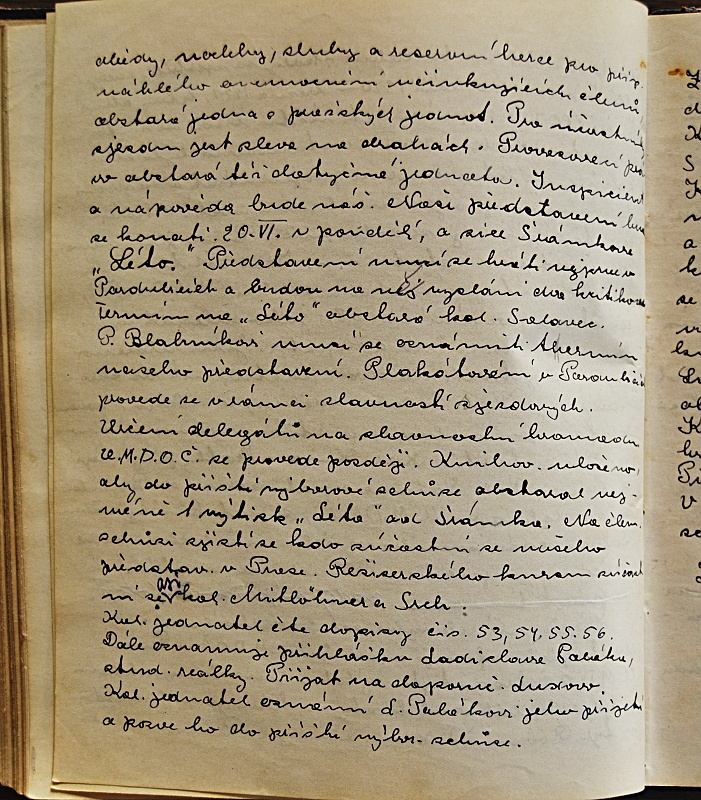 obědy, noclehy, sluhy a reservní herce pro příp.
náhlého onemocnění účinkujících členů
obstará jedna z pražských jednot. Pro účastníky
sjezdu jest sleva na drahách. Provozovací prá-
vo obstará též dotyčná jednota. Inspicient
a nápověda bude náš. Naše představení bude
se konati 20.VI. v pondělí, a sice Šrámkovo
„Léto." Představení musí se hráti nejprve v
Pardubicích a budou na něj vysláni dva kritikové
Termín na „Léto" obstará kol. Solavec.
P. Blahníkovi musí se oznámiti termín
našeho představení. Plakátování v Pardubicích
provede se v rámci slavností sjezdových.
Určení delegátů na slavnostní hromadu
Ú.M.D.O.Č. se provede později. Knihov. uloženo,
aby do příští výborové schůze obstaral nej-
méně 1 výtisk „Léto" od Šrámka. Na člen.
schůzi zjistí se kdo súčastní se našeho
představ. v Praze. Režisérského kursu súčast
ní se asi kol. Mühlöhner a Srch.
Kol. jednatel čte dopisy čís. 53, 54, 55. 56.
Dále oznamuje přihlášku Ladislava Paláka,
stud. reálky. Přijat na doporuč.
Kol. jednatel oznámí d. Palákovi jeho přijetí
a pozve ho do příští výbor. schůze.